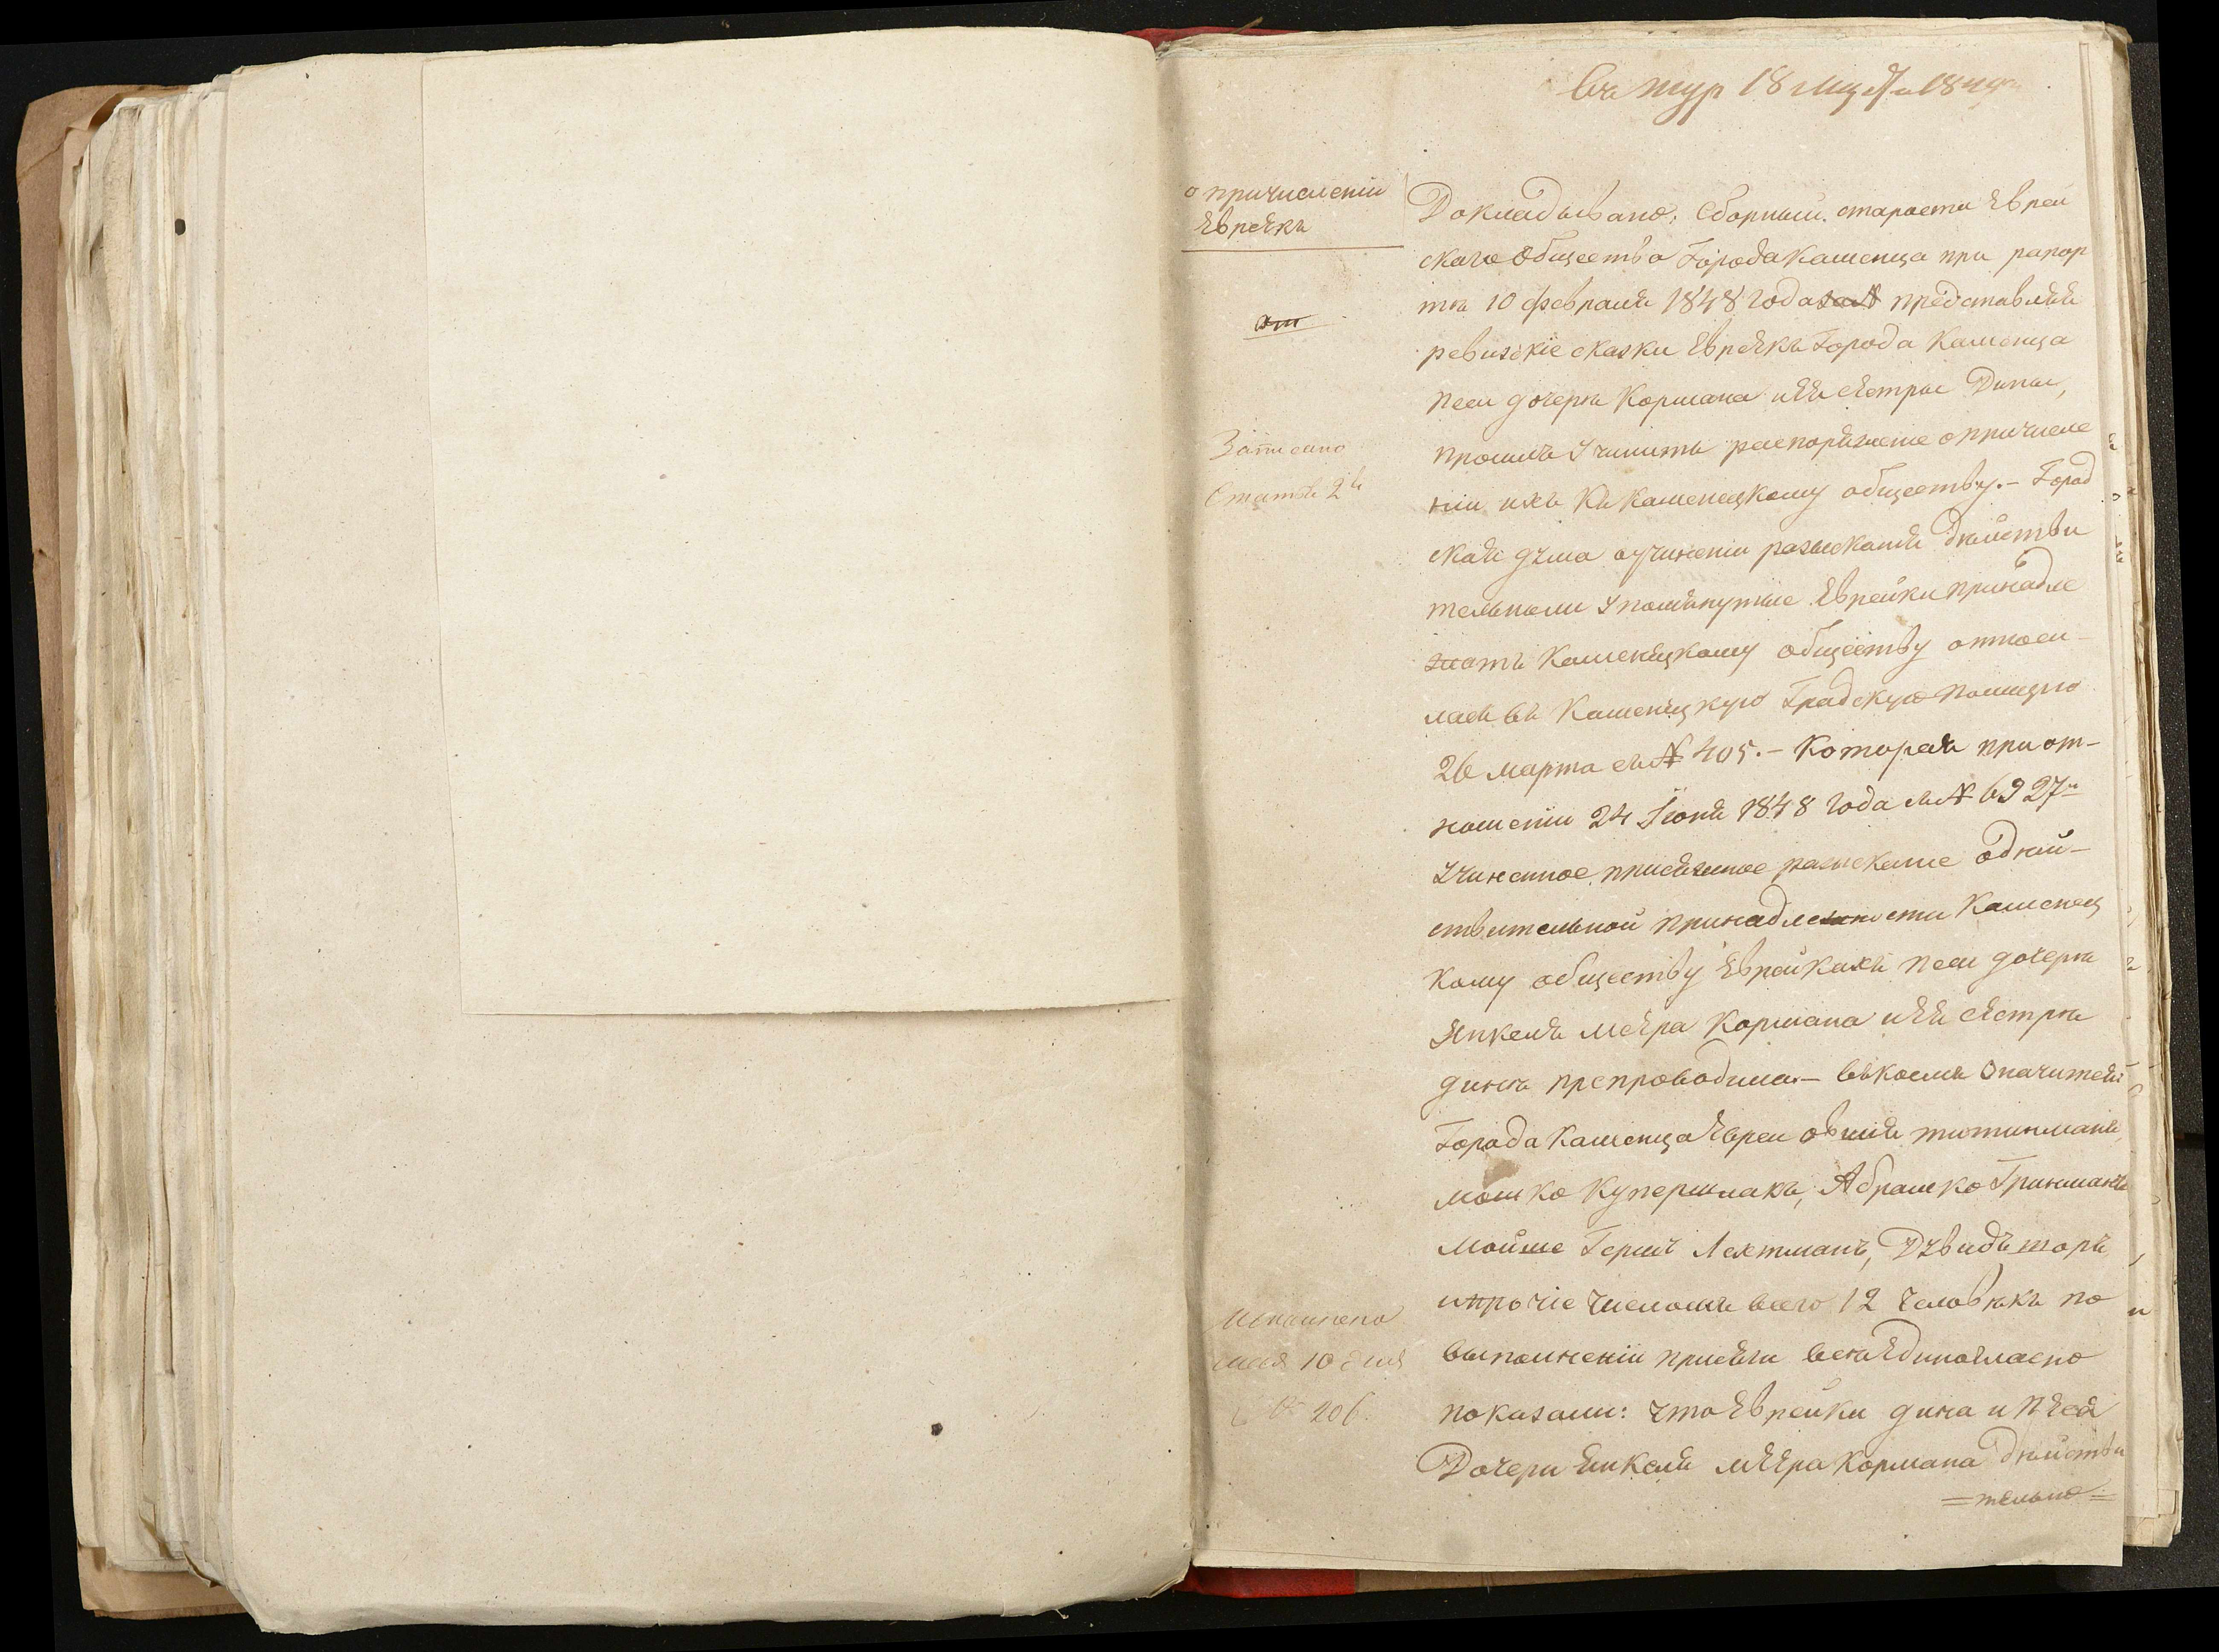 18 1849
о причисленіи
Евреекъ
Докладывано: Сборный староста Еврей
скаго Общества Города Каменца при рапор
тѣ 10 февраля 1848 года представляя
ревизскіе сказки Евреекъ Города Каменца
Песи дочери Кормана и Ея сестры Дины,
просилъ Учинить распоряженіе о причисле
ніи ихъ Къ Каменецкому обществу. – Город
ская дума о учиненіи разысканія Действи
тельноли Упомянутые Еврейки принадле
жатъ Каменецкому обществу относи-
лась въ Каменецкую Градскую Полицію
26 марта съ № 405. – Которая при от-
ношеніи 24 Іюня 1848 года съ № 6927м
Учиненное присяжное разысканіе о дѣй-
ствительной принадлежности Каменец
кому обществу Еврейкахъ Песи дочери
Янкеля Меера Кормана и Ея сестрѣ
динѣ препроводила. – въ коемъ Значится
Города Каменца Евреи овшія тютинманъ,
Мошко Купершлакъ, Абрамко Гринманъ
Мойше Гершъ Лехтманъ, Дувидъ торъ
и прочіе Числомъ всего 12 Человѣкъ по
выполненіи присяги всѣ Единогласно
показали: что Еврейки дина и Песя
Дочери Янкеля Меера Кормана Дѣйстви
= тельно =
Записано
Статьѣ 2й
Исполнено
мая 10 дня
№ 206